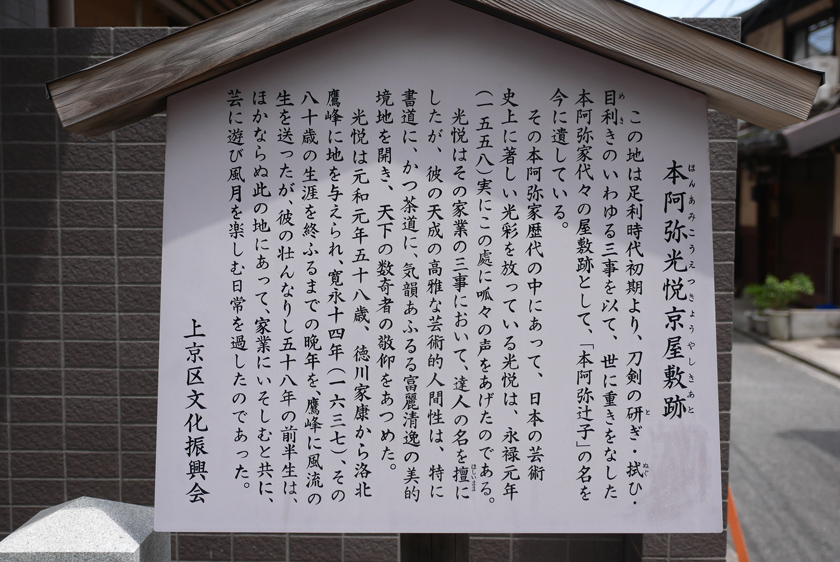 本阿弥光悦京屋敷跡
ほんあみこうえつきょうやしきあと
この地は足利時代初期より、刀剣の研ぎ・拭ひ・
と
ぬぐ
目利きのいわゆる三事を以て、世に重きをなした
めき
本阿弥家代々の屋敷跡として、「本阿弥辻子」の名を
今に遺している。
その本阿弥家歴代の中にあって、日本の芸術
史上に著しい光彩を放っている光悦は、永禄元年
(一五五八)実にこの處に呱々の声をあげたのである。
光悦はその家業の三事において、達人の名を擅に
ほしいまま
したが、彼の天成の高雅な芸術的人間性は、特に
書道に、かつ茶道に、気韻あふるる富麗清逸の美的
境地を開き、天下の数奇者の敬仰をあつめた。
光悦は元和元年五十八歳、徳川家康から洛北
鷹峰に地を与えられ、寛永十四年(一六三七)、その
八十歳の生涯を終ふるまでの晩年を、鷹峰に風流の
生を送ったが、彼の壮んなりし五十八年の前半生は、
ほかならぬ此の地にあって、家業にいそしむと共に、
芸に遊び風月を楽しむ日常を過したのであった。
上京区文化振興会